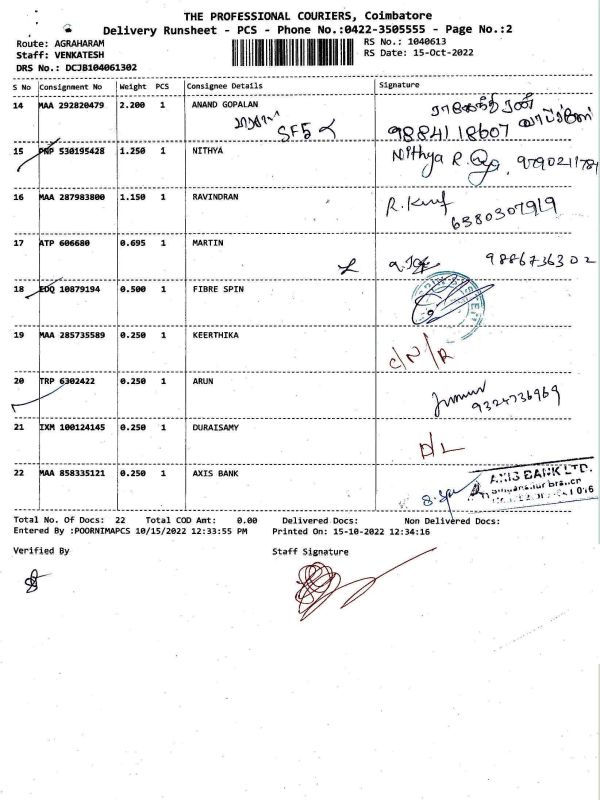 THE PROFESSIONAL COURIERS, Coimbatore
Delivery Runsheet - PCS - Phone No.:0422-3505555 - Page No.:2
Route: AGRAHARAM
RS No.: 1040613
Staff: VENKATESH
RS Date: 15-Oct-2022
DRS No.: DCJB104061302
S No Consignment No Weight PCS Consignee Details Signature
14 MAA 292820479 2.200 1 ANAND GOPALAN
SF5
9884118607
15 PNP 530195428 1.250 1 NITHYA Nithya R. 9790211784
16 MAA 287983800 1.150 1 RAVINDRAN R.
6380307919
17 ATP 606680 0.695 1 MARTIN 9886736302
18 EDQ 10879194 0.500 1 FIBRE SPIN
19 MAA 285735589 0.250 1 KEERTHIKA
C/N/R
20 TRP 6302422 0.250 1 ARUN
9324736969
21 IXM 100124145 0.250 1 DURAISAMY
D/L
22 MAA 858335121 0.250 1 AXIS BANK AXIS BANK LTD.
Total No. Of Docs: 22 Total COD Amt: 0.00 Delivered Docs: Non Delivered Docs:
Entered By :POORNIMAPCS 10/15/2022 12:33:55 PM Printed On: 15-10-2022 12:34:16
Verified By Staff Signature